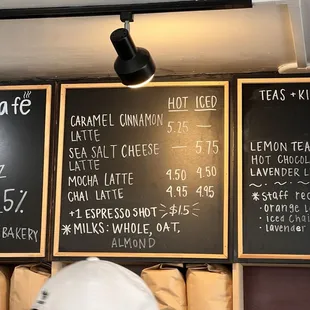 afé
5%
BAKERY
HOT ICED
CARAMEL CINNAMON 5.25 —
LATTE
SEA SALT CHEESE — 5.75
LATTE
MOCHA LATTE 4.50 4.50
CHAI LATTE 4.95 4.95
+1 ESPRESSO SHOT $1.5
*MILKS: WHOLE, OAT,
ALMOND
TEAS + K
LEMON TEA
HOT CHOCOL
LAVENDER L
*staff rec
· orange L
· iced Chai
· lavender